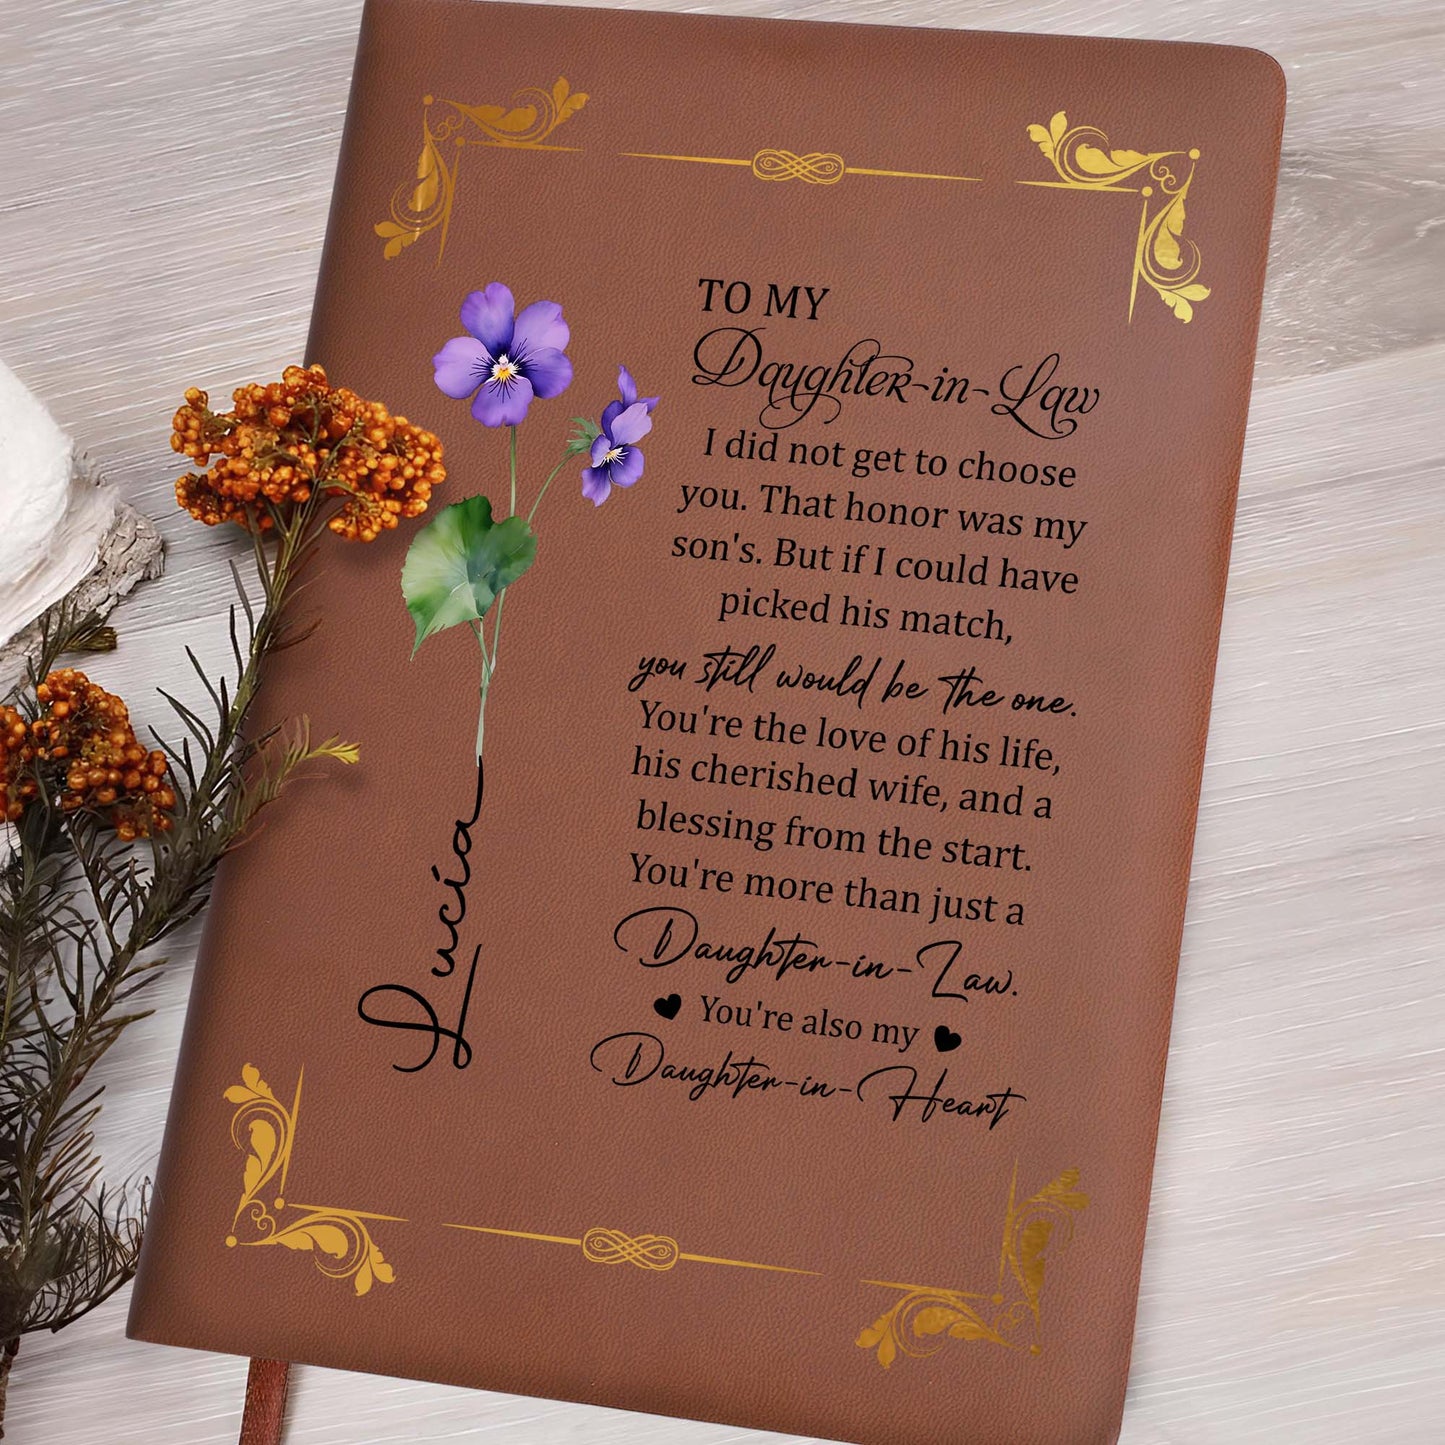 TO MY
Daughter-in-Law
I did not get to choose
you. That honor was my
son's. But if I could have
picked his match,
you still would be the one.
You're the love of his life,
his cherished wife, and a
blessing from the start.
You're more than just a
Daughter-in-Law.
You're also my
Daughter-in-Heart
Lucía